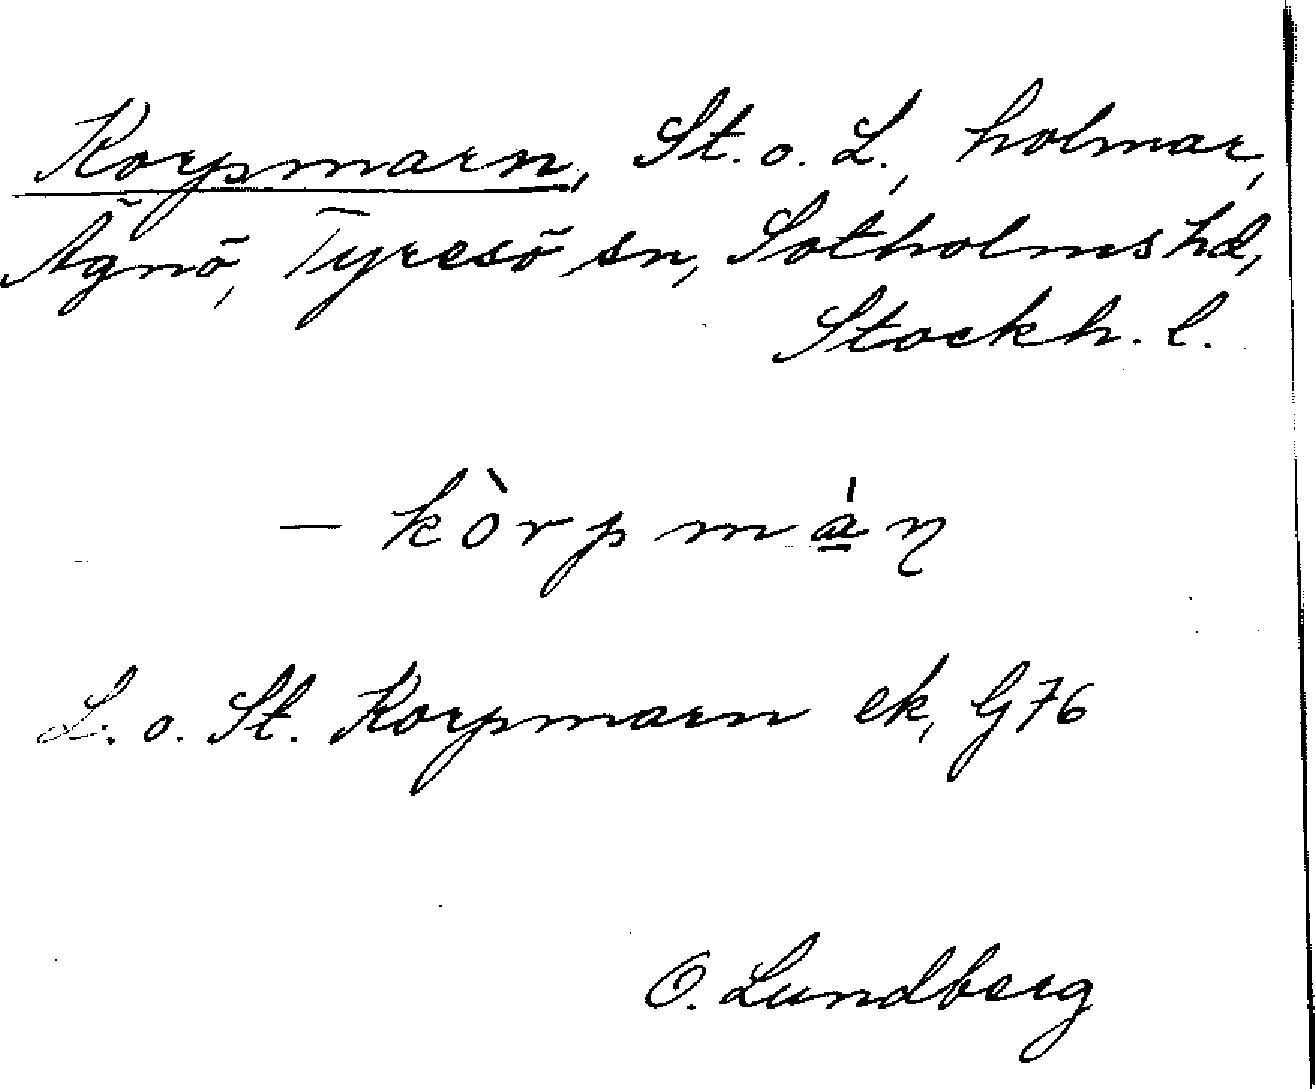 Korpmarn, St. o. L., holmar,
Ägnö, Tyresö sn, Sotholms hd,
Stockh. l.
— kòrpmán
L. o. St. Korpmarn ek, G76
O. Lundberg